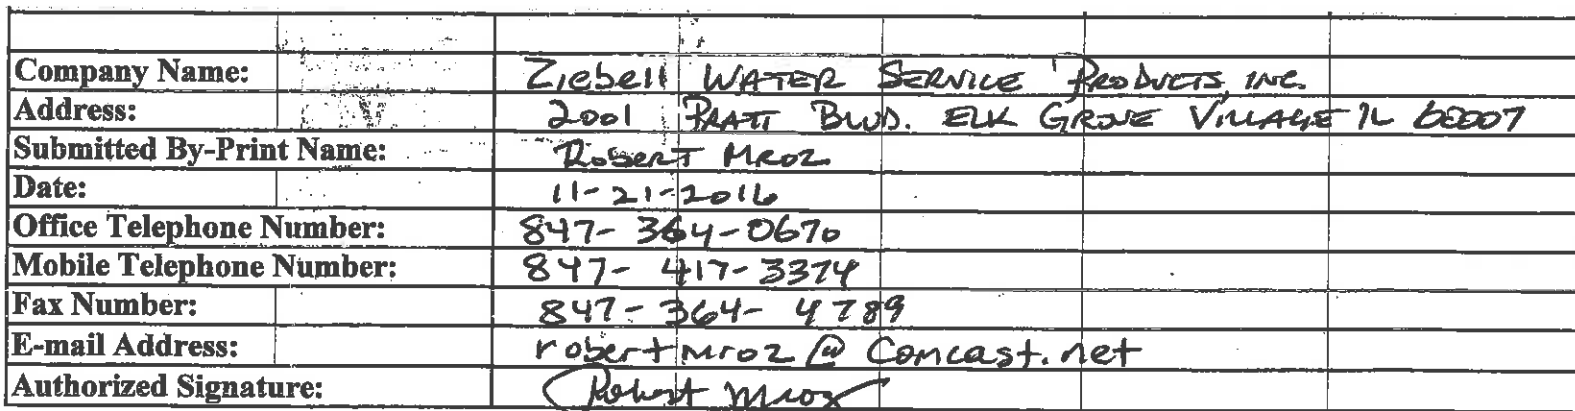 Company Name: Ziebell WATER SERVICE PRODUCTS, INC.
Address: 2001 PRATT BLVD. ELK GROVE VILLAGE IL 60007
Submitted By-Print Name: ROBERT MROZ
Date: 11-21-2016
Office Telephone Number: 847-364-0670
Mobile Telephone Number: 847-417-3374
Fax Number: 847-364-4789
E-mail Address: robertmroz@Comcast.net
Authorized Signature: Robert Mroz